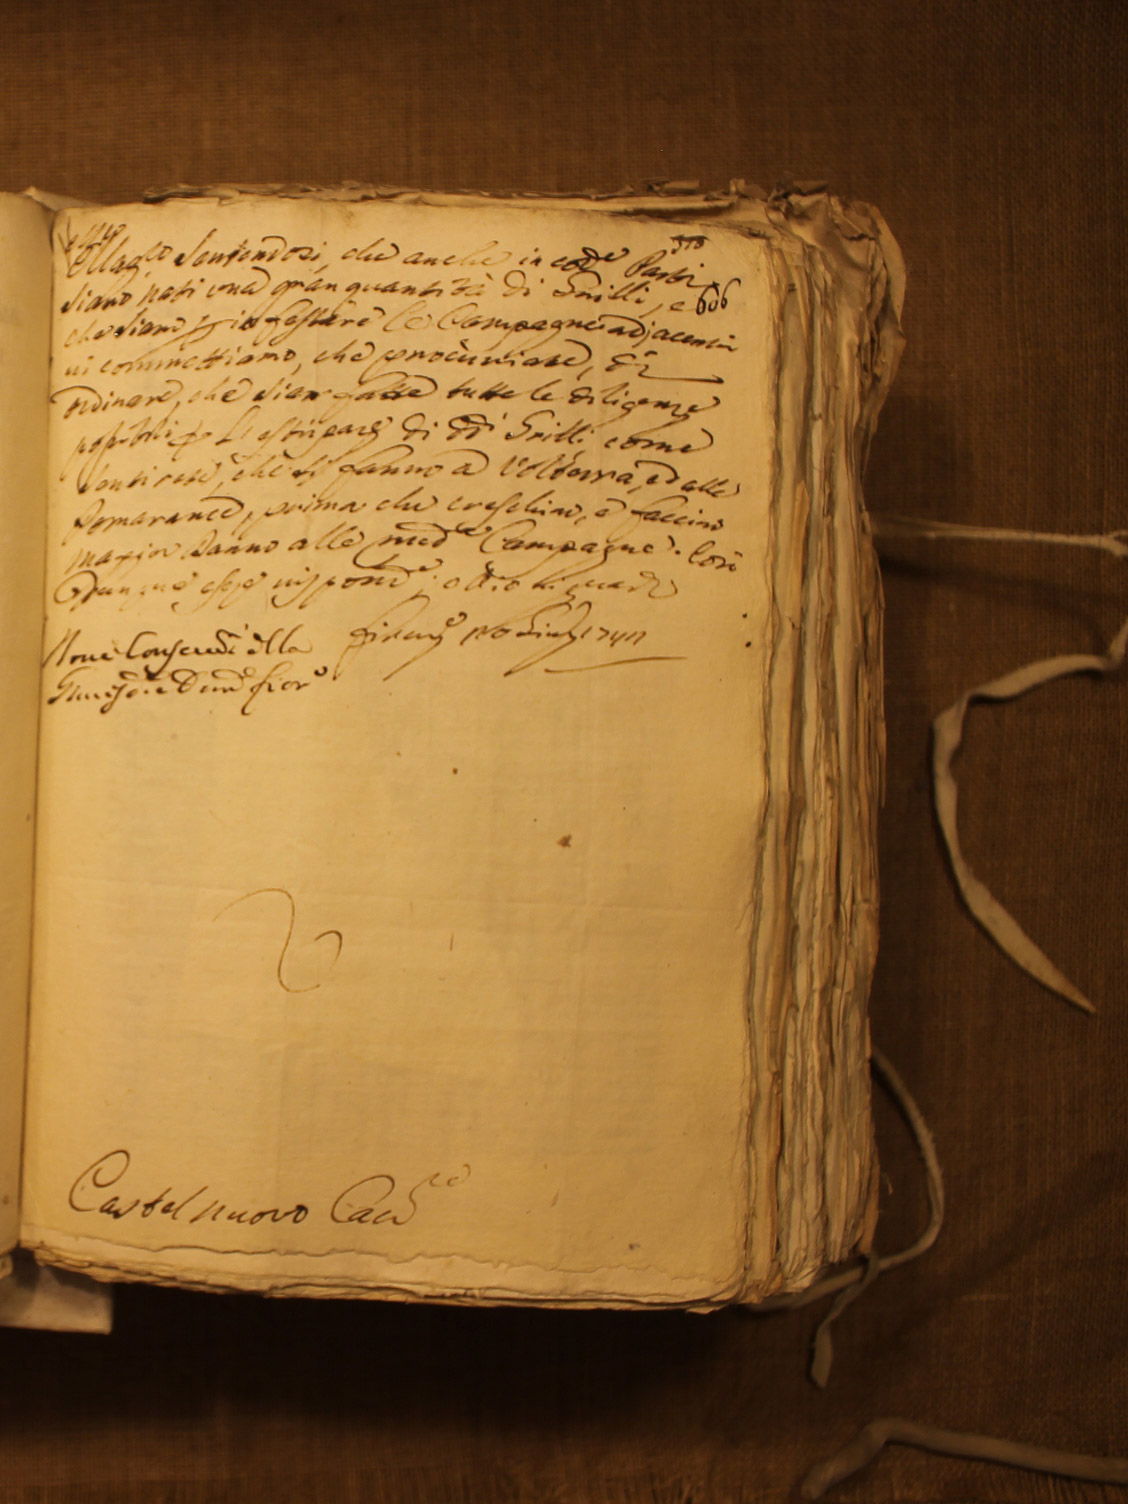 378
Mag.co Sentendosi, che anche in cod.e Parti
siano nati una gran quantità di Grilli, e
606
che siano p infestare le Campagne adjacenti
vi commettiamo, che procuriate, di
ordinare, che sian fatte tutte le diligenze
possibili p l'estirpare di dd.i Grilli come
sentirete, che si fanno a Volterra, ed alle
Pomarance, prima che creschino, e faccino
maggior danno alle med.e Campagne. Così
adunque esse rispond.e; e Dio vi guardi
Firenze Giug. 1711
Nove Conser.ri della
Giurisd.e e Dom.o Fior.o
Castel nuovo